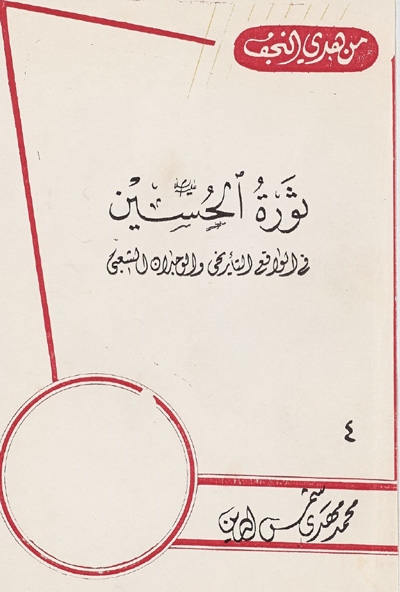 من هدي النجف
ثورة الحسين عليه السلام
في الواقع التأريخي والوجدان الشعبي
٤
محمد مهدي شمس الدين